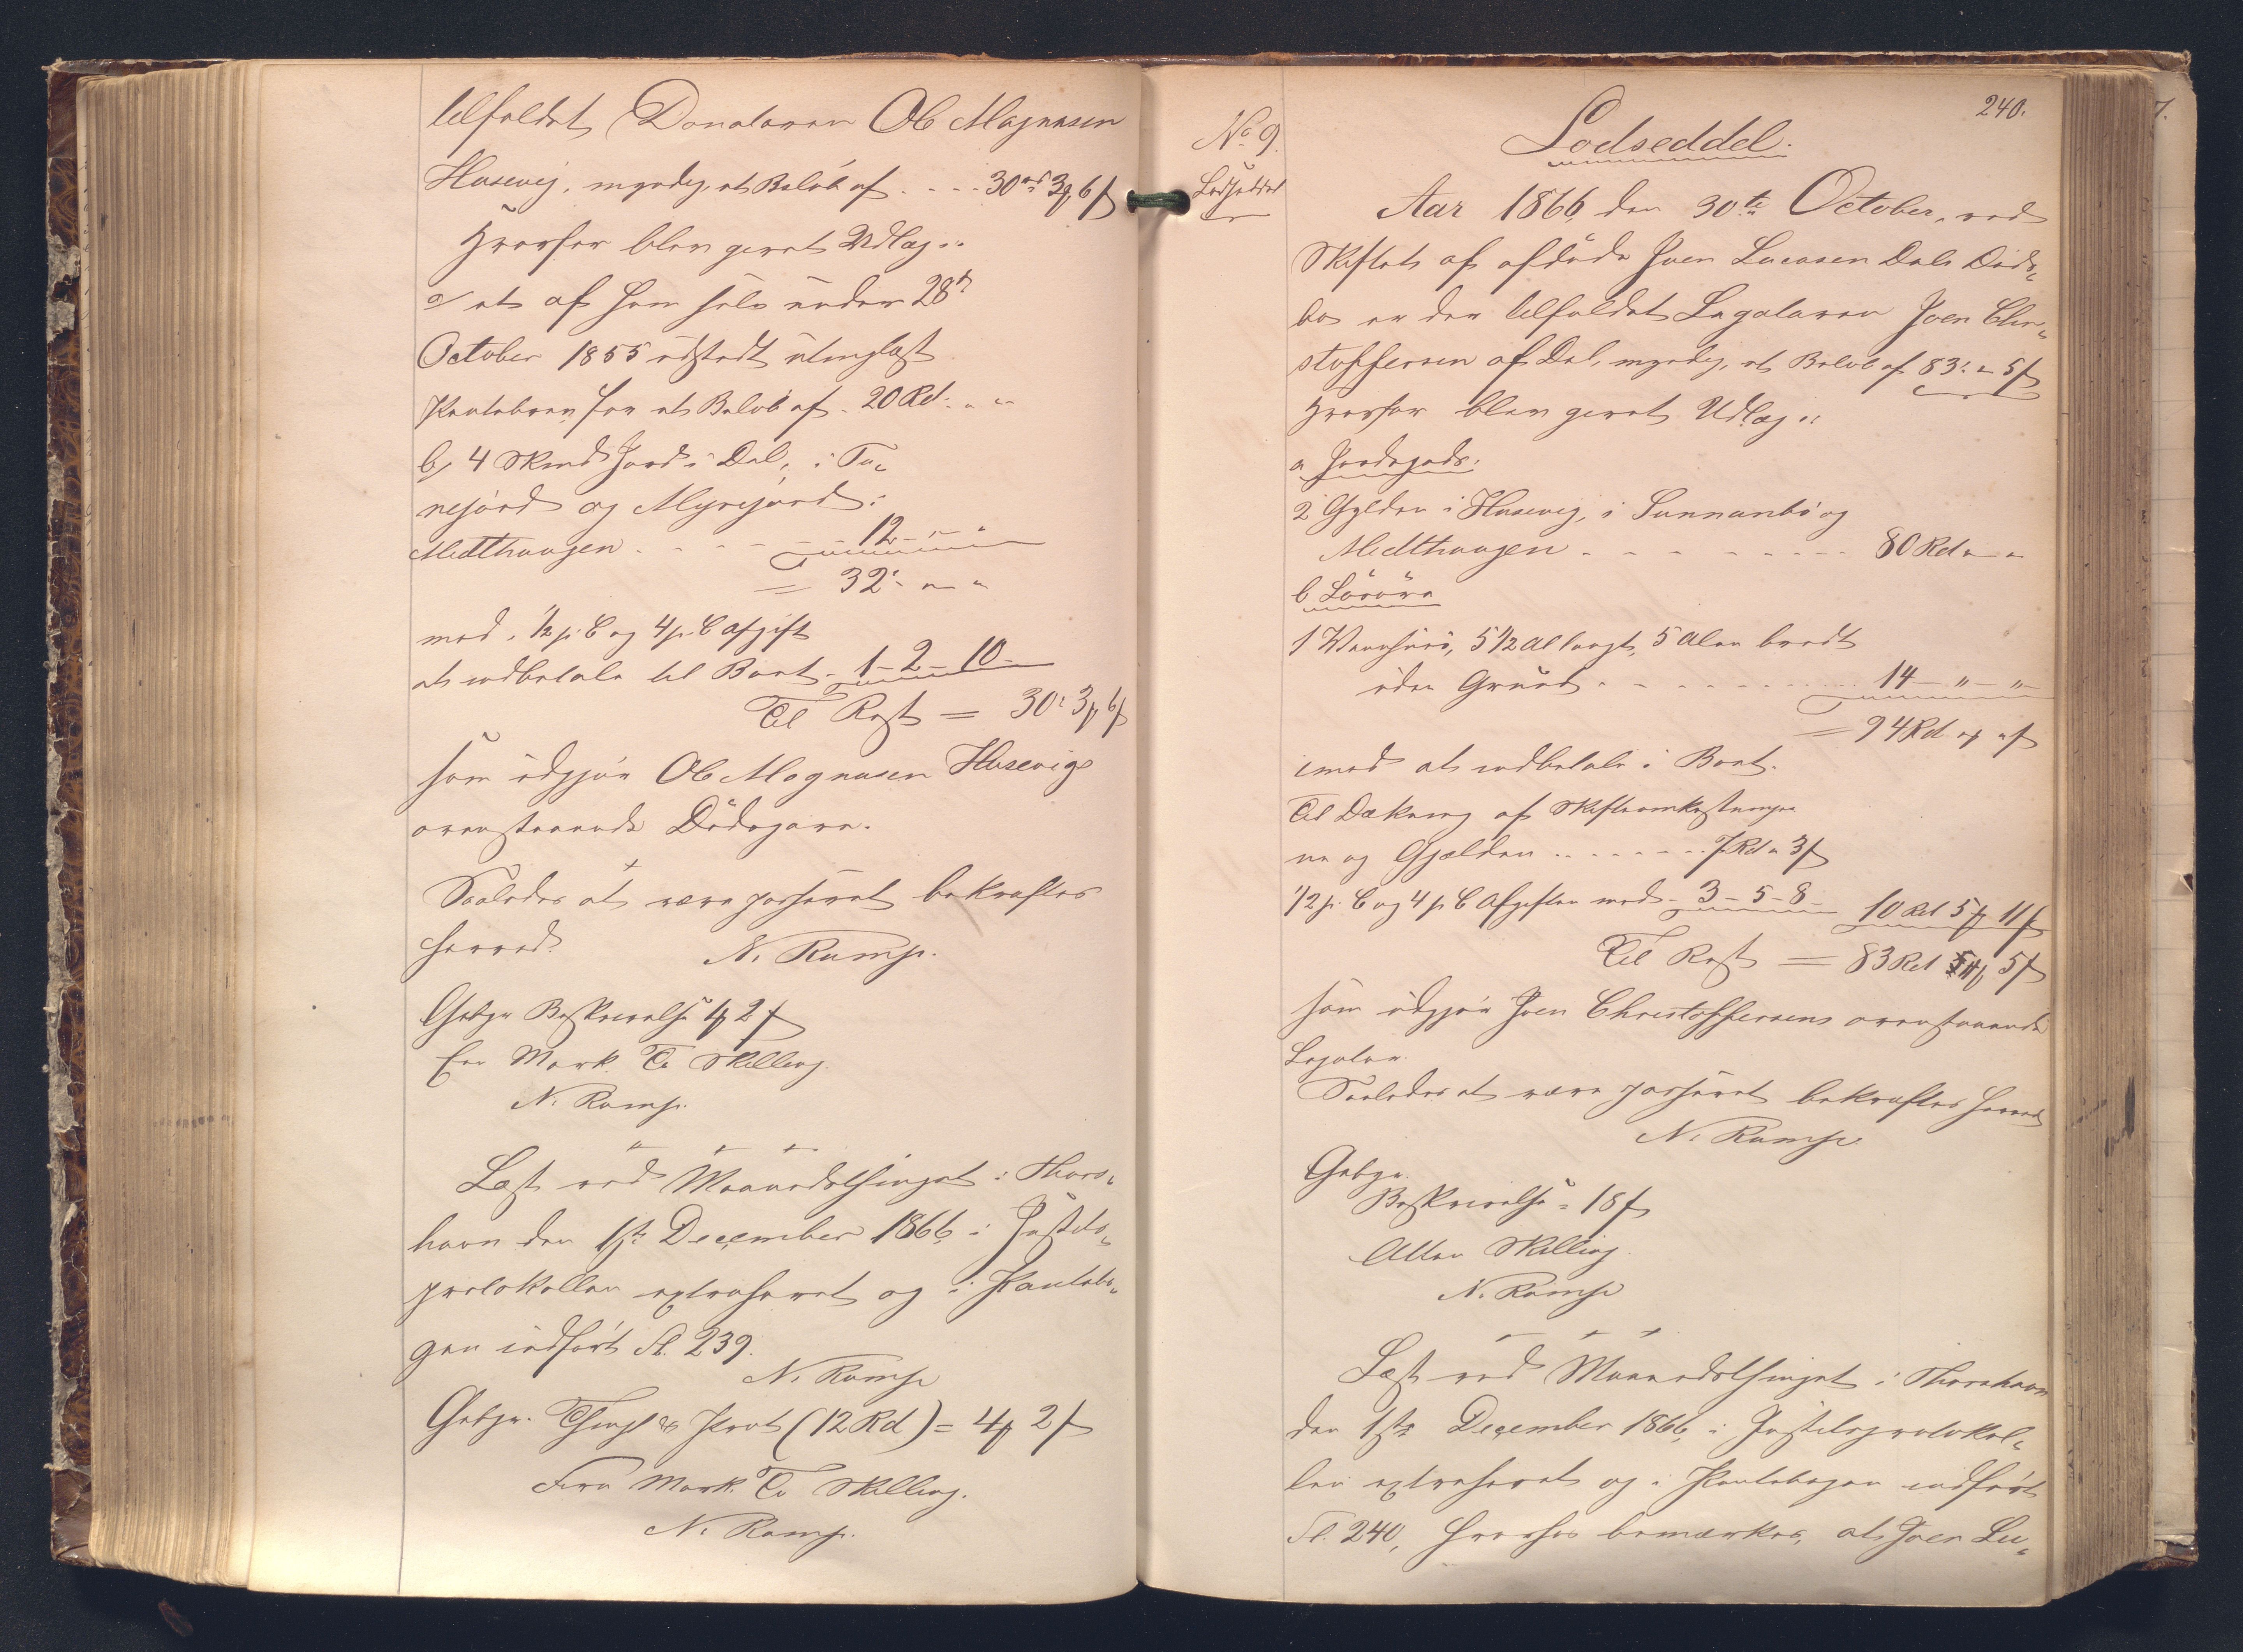 tilfaldet Donataren Ole Magnusen
Husevig, myndig, et Beløb af . . . 30 rd 3 ₻ 6 ſ
hvorfor blev gjort Udlæg:
a/ et af ham selv under 28de
October 1855 udstedt utinglæst
Pantebrev for et Beløb af . 20 Rd. " "
b, 4 Skind Jord i Dal, i Tu-
nejord og Myrejord i
Midthaugen . . . . . 12 – " – "
= 32 " "
med ½ p. C og 4 p. C Afgift
at indbetale til Boet – 1 – 2 – 10 –
Til Rest = 30 : 3 ₻ 6 ſ
som udgjør Ole Magnusen Husevigs
ovenstaaende Dødsgave.
Saaledes at være passeret bekræftes
herved.
N. Rump.
Gebyr Beskrivelse 1 ₻ 2 ſ
Een Mark To Skilling.
N. Rump.
Læst ved Maanedsthinget i Thors-
havn den 1ste December 1866, i Justits-
protokollen extraheret og i Pantebo-
gen indført Fl. 239.
N. Rump
Gebyr. Thingl & Prot (12 Rd) = 4 ₻ 2 ſ
Fire Mark To Skilling.
N. Rump.
240.
No 9.
Lodseddel
Lodseddel.
Aar 1866, den 30te October, ved
Skiftet af afdøde Joen Lucasen Dals Døds-
bo er der tilfaldet Legataren Joen Chri-
stoffersen af Dal, myndig, et Beløb af 83 : " 5 ſ
hvorfor blev gjort Udlæg:
a Jordegods:
2 Gylden i Husevig, i Sunnanbø og
Midthaugen . . . . . . . 80 Rd " "
b Løsøre
1 Vaanhuus, 5 ½ Al langt, 5 Alen bredt
uden Grund . . . . . . . 14 – " – "
= 94 Rd " ₻ " ſ
imod at indbetale i Boet.
Til Dækning af Skifteomkostninger
ne og Gjælden . . . . . . 7 Rd " 3 ſ
½ p. C og 4 p C Afgiften med – 3 – 5 – 8 – 10 Rd 5 ₻ 11 ſ
Til Rest = 83 Rd " ₻ 5 ſ
som udgjør Joen Christoffersens ovenstaaende
Legater.
Saaledes at være passeret bekræftes herved
N. Rump.
Gebyr.
Beskrivelse = 18 ſ
Atten Skilling.
N. Rump
Læst ved Maanedsthinget i Thorshavn
den 1ste December 1866, i Justitsprotokol-
len extraheret og i Pantebogen indført
Fl. 240, hvorhos bemærkes, at Joen Lu-